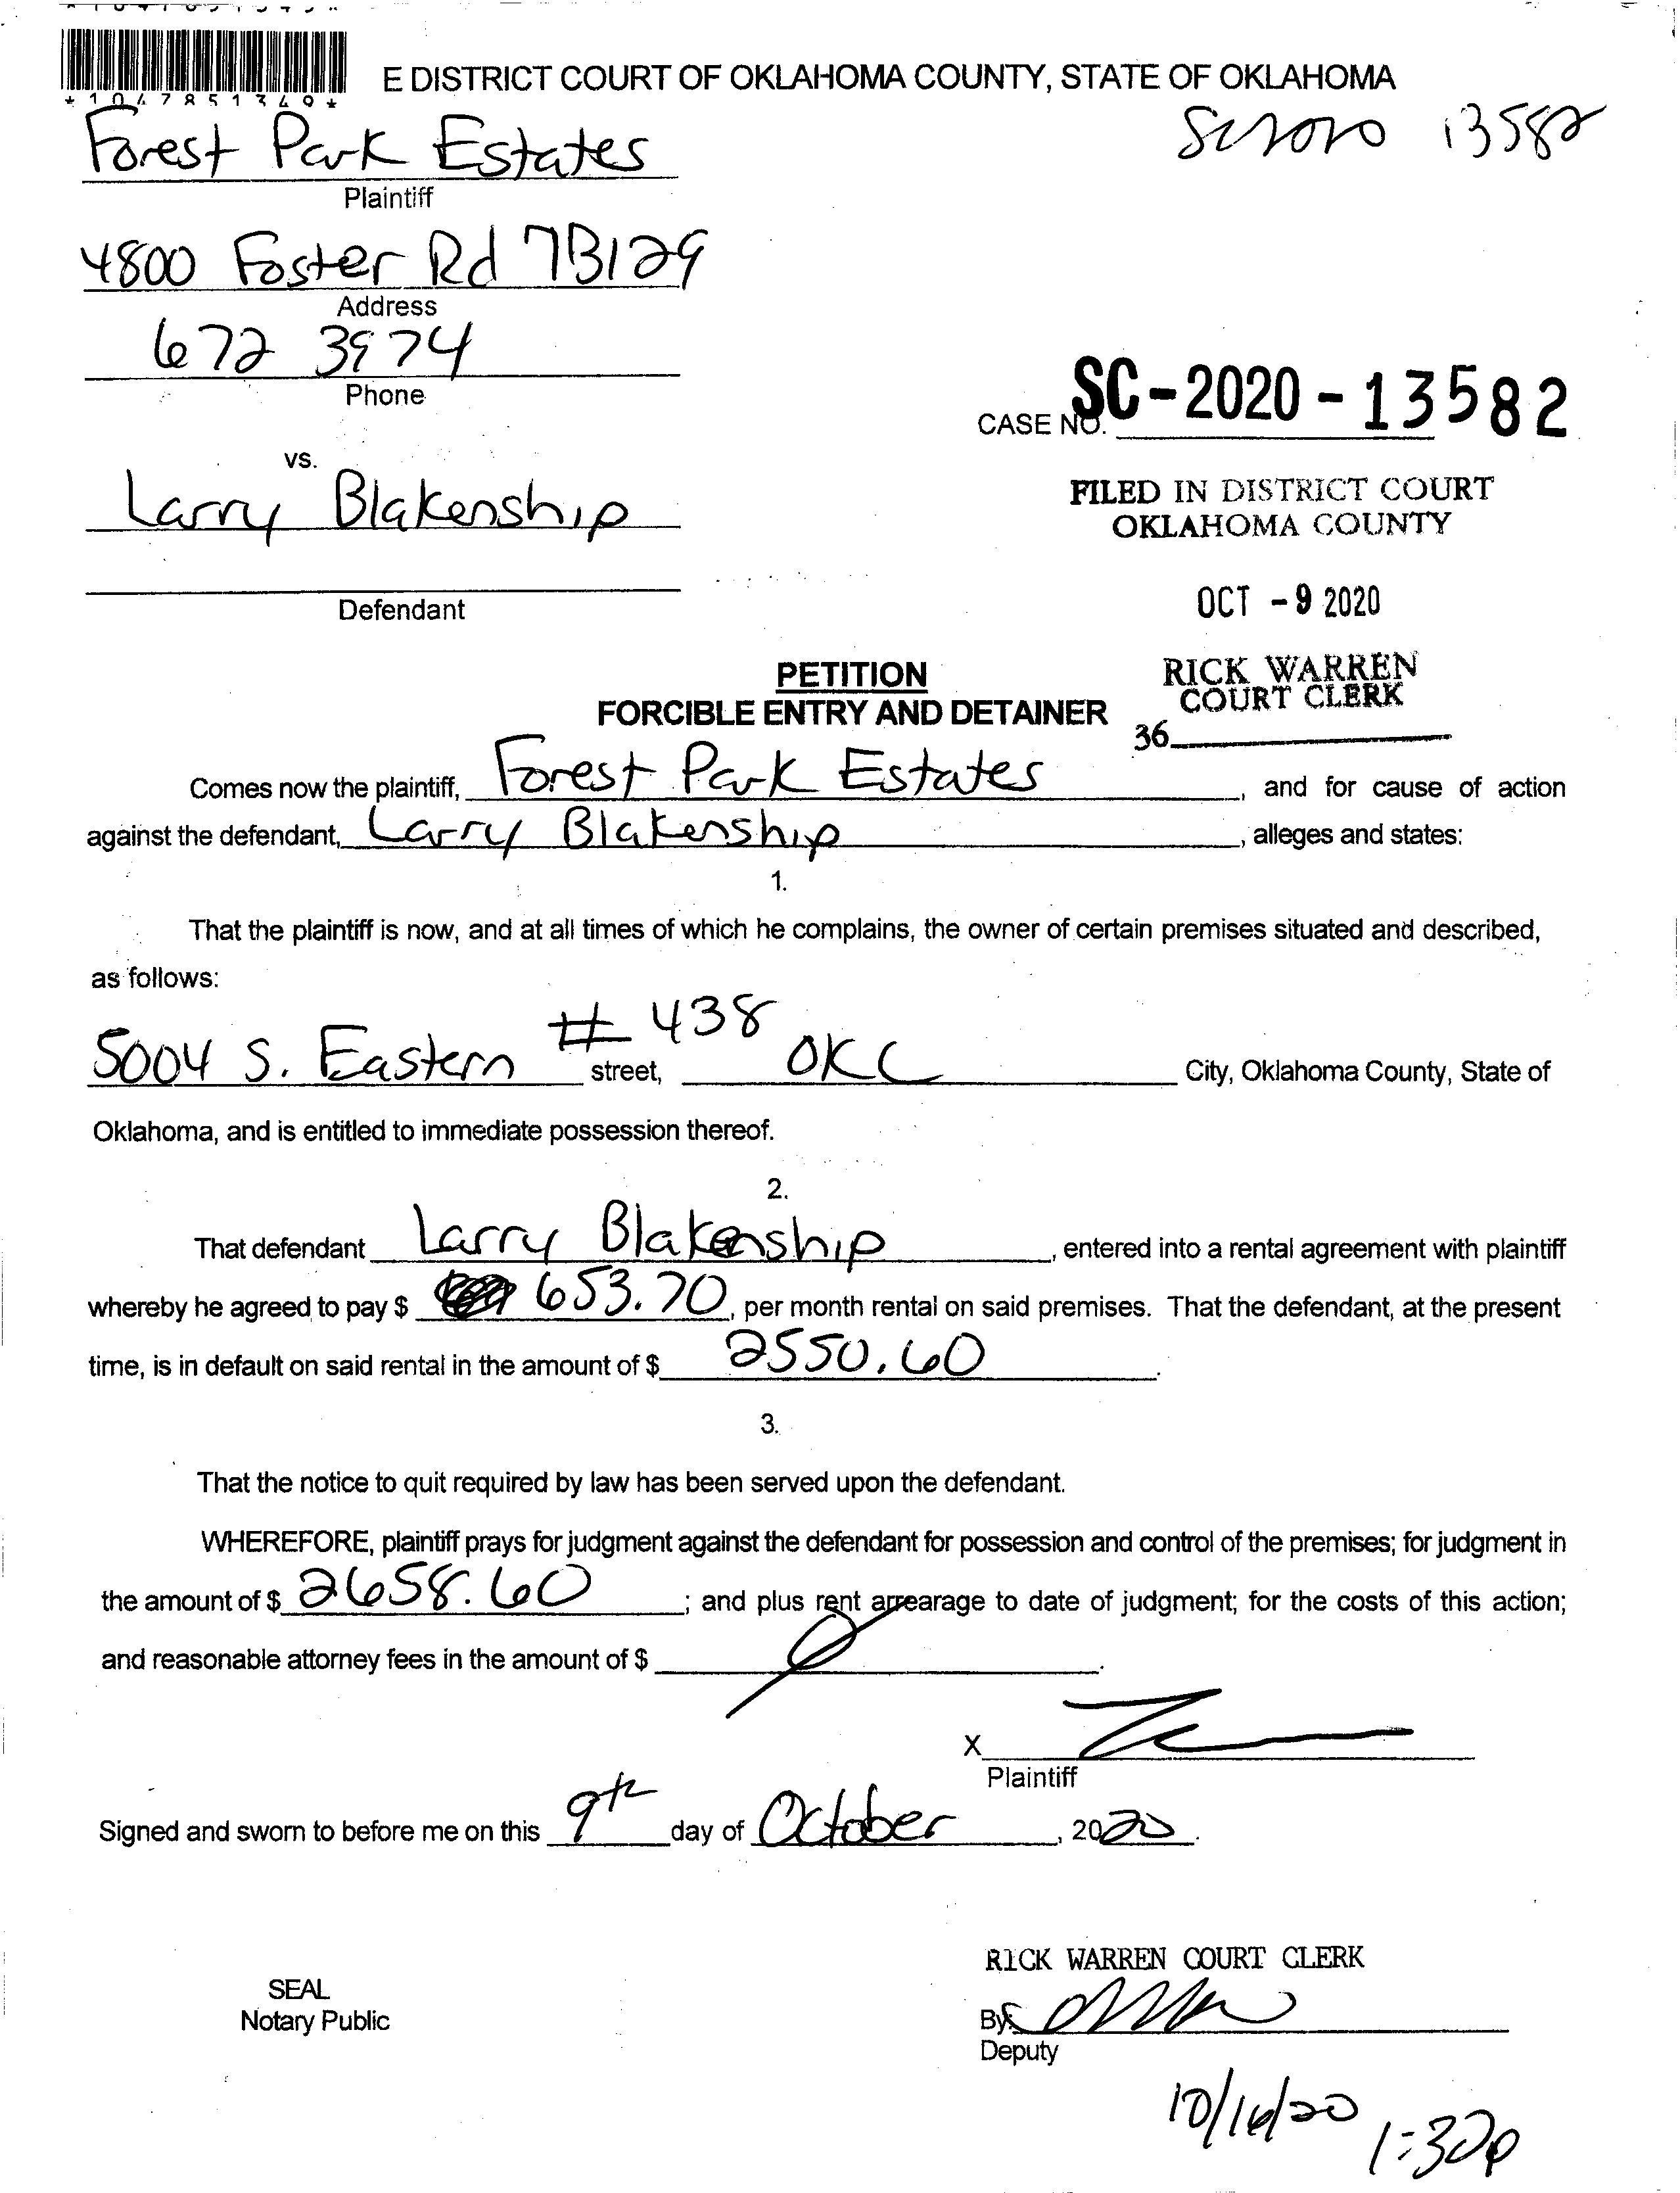 *1047851349*
E DISTRICT COURT OF OKLAHOMA COUNTY, STATE OF OKLAHOMA
SC2020 13582
Forest Park Estates
Plaintiff
4800 Foster Rd 73129
Address
672 3974
Phone
CASE NO. SC-2020-13582
vs.
Larry Blakenship
FILED IN DISTRICT COURT
OKLAHOMA COUNTY
Defendant
OCT -9 2020
PETITION
RICK WARREN
COURT CLERK
FORCIBLE ENTRY AND DETAINER
36
Comes now the plaintiff, Forest Park Estates, and for cause of action
against the defendant, Larry Blakenship, alleges and states:
1.
That the plaintiff is now, and at all times of which he complains, the owner of certain premises situated and described,
as follows:
5004 S. Eastern # 438 street, OKC City, Oklahoma County, State of
Oklahoma, and is entitled to immediate possession thereof.
2.
That defendant Larry Blakenship, entered into a rental agreement with plaintiff
whereby he agreed to pay $ 653.70, per month rental on said premises. That the defendant, at the present
time, is in default on said rental in the amount of $ 2550.60.
3.
That the notice to quit required by law has been served upon the defendant.
WHEREFORE, plaintiff prays for judgment against the defendant for possession and control of the premises; for judgment in
the amount of $ 2658.60; and plus rent arrearage to date of judgment; for the costs of this action;
and reasonable attorney fees in the amount of $ .
X
Plaintiff
Signed and sworn to before me on this 9th day of October, 2020.
RICK WARREN COURT CLERK
SEAL
Notary Public
By:
Deputy
10/16/20 1:30p